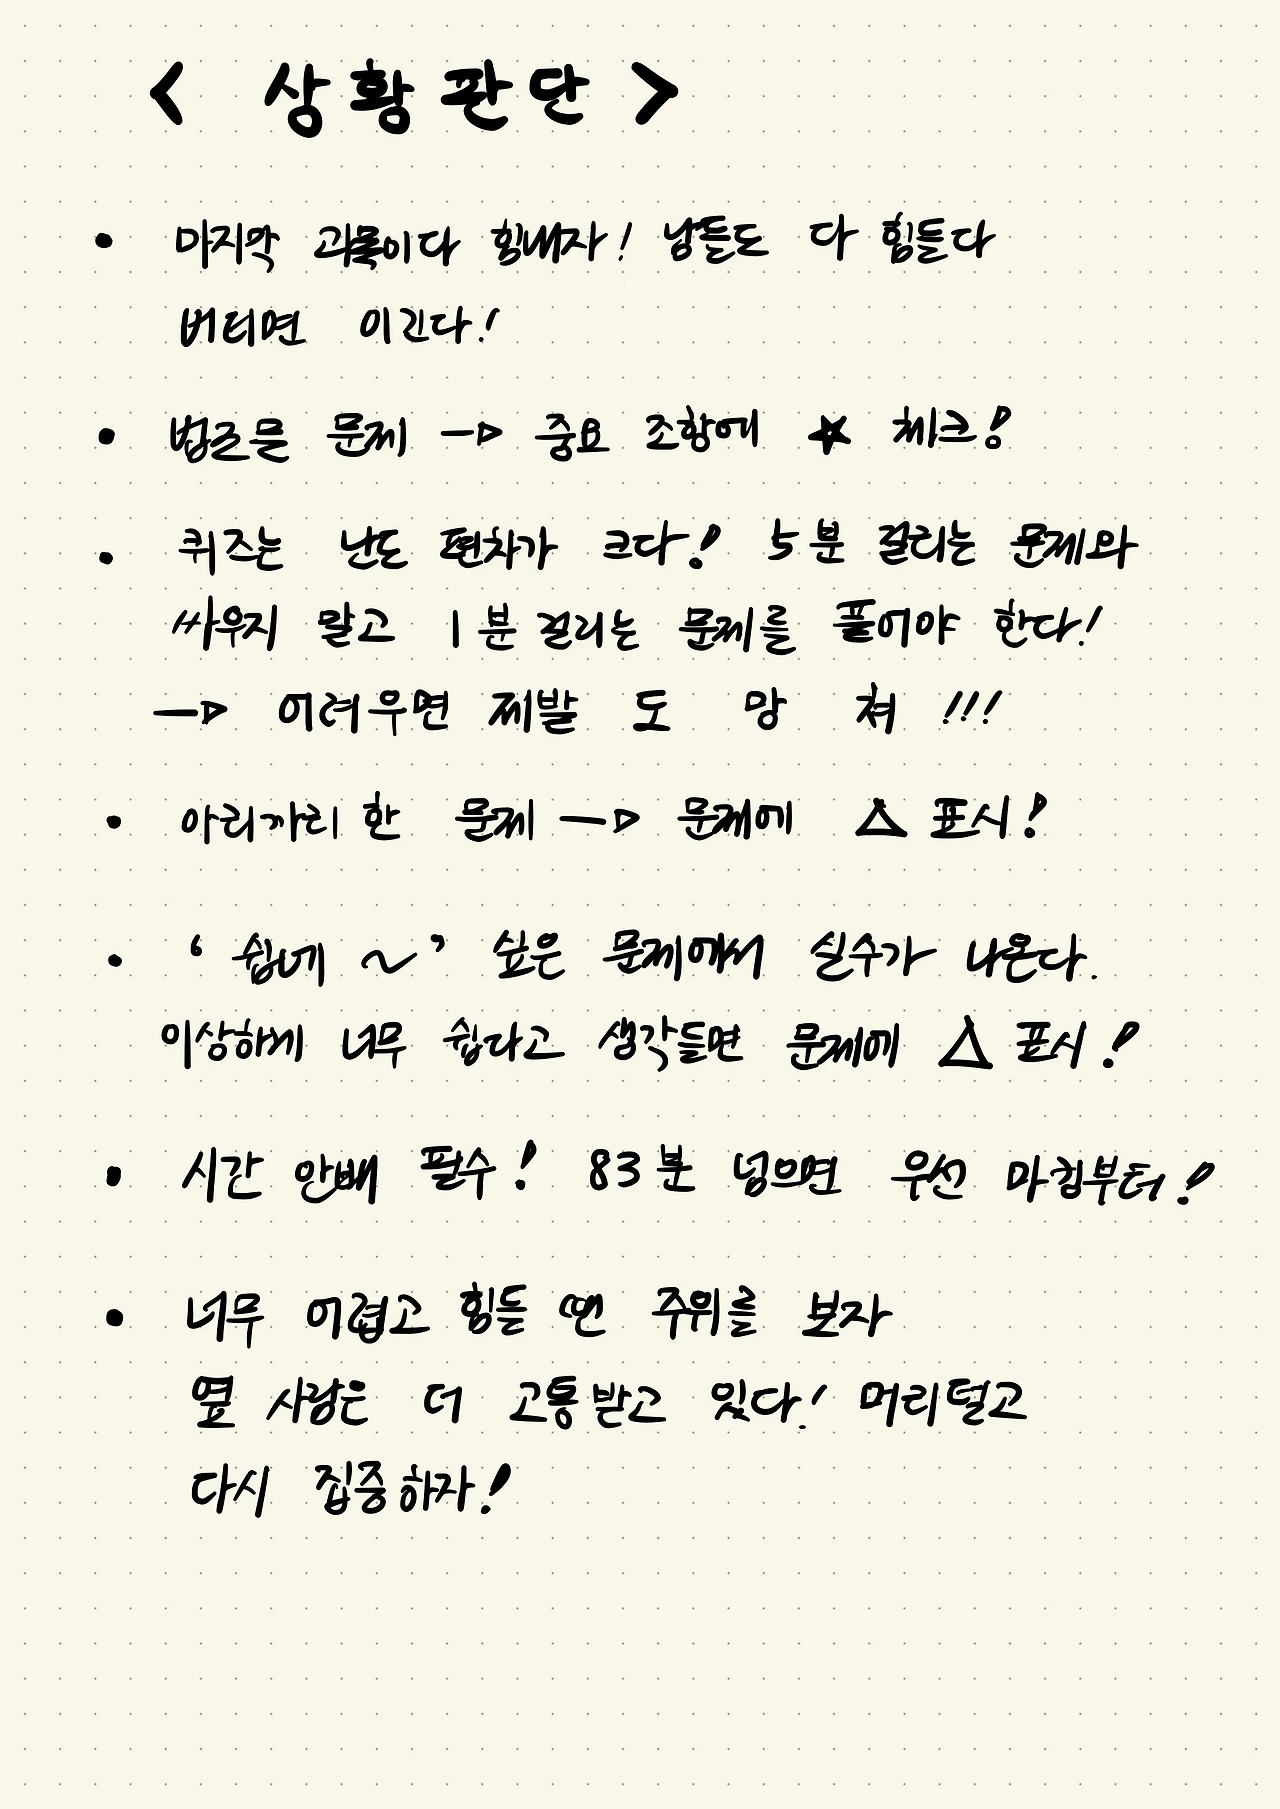 < 상황판단 >
• 마지막 과목이다 힘내자! 남들도 다 힘들다
버티면 이긴다!
• 법르믈 문제 → 중요 조항에 ★ 체크!
• 퀴즈는 난도 편차가 크다! 5분 걸리는 문제와
싸우지 말고 1분 걸리는 문제를 풀어야 한다!
→ 어려우면 제발 도 망 쳐 !!!
• 아리까리 한 문제 → 문제에 △ 표시!
• ' 쉽네 ~ ' 싶은 문제에서 실수가 나온다.
이상하게 너무 쉽다고 생각들면 문제에 △ 표시!
• 시간 안배 필수! 83분 넘으면 우선 마킹부터!
• 너무 어렵고 힘들 땐 주위를 보자
옆 사람은 더 고통받고 있다! 머리털고
다시 집중하자!